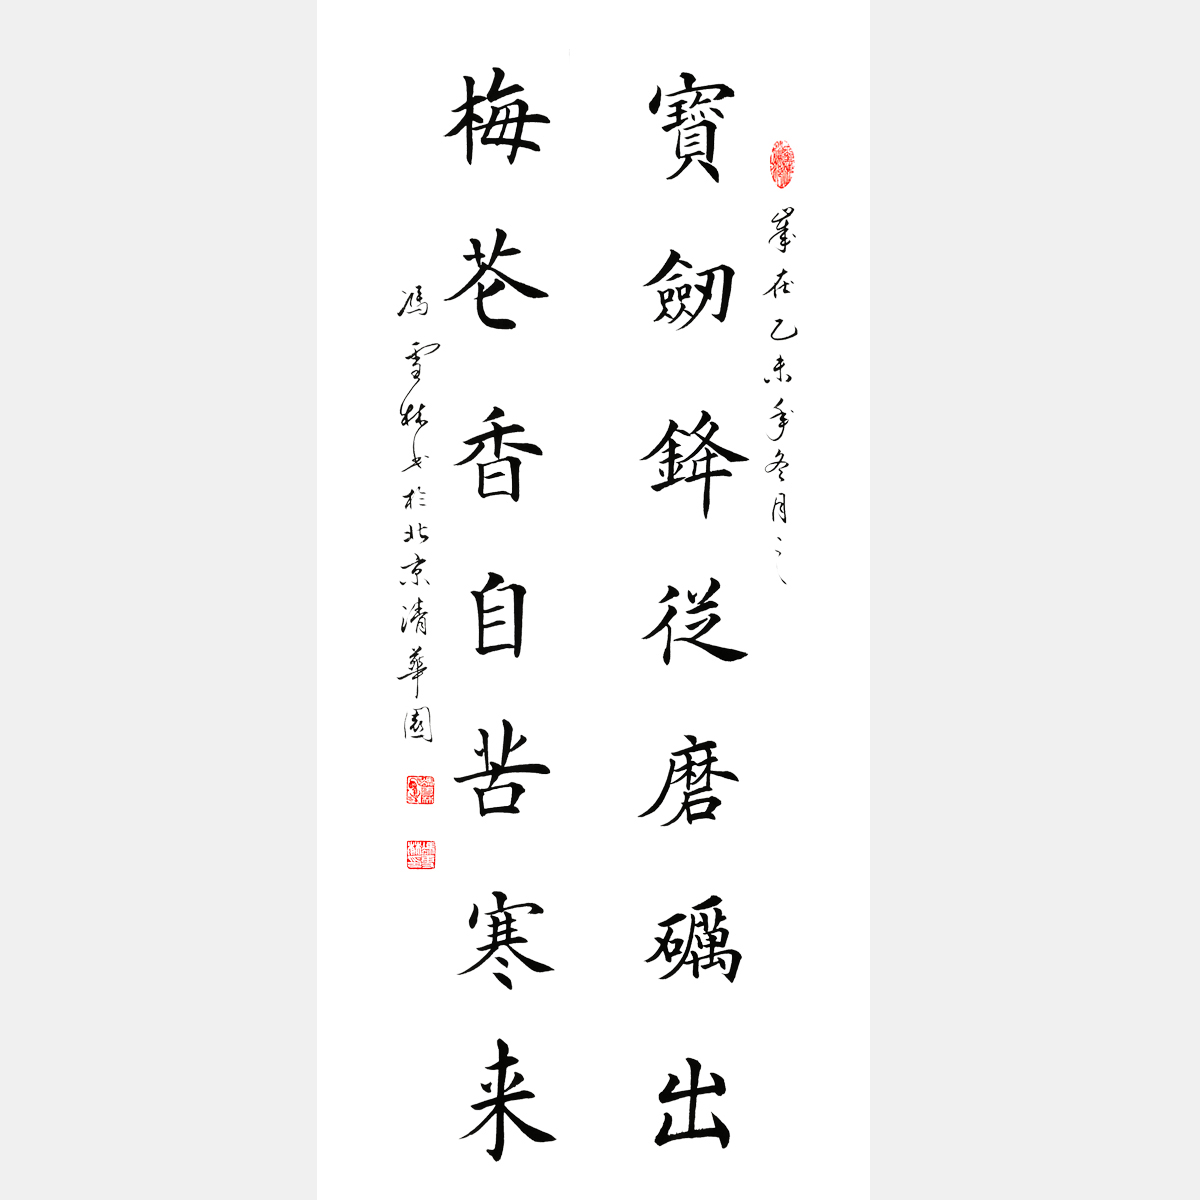 歲在乙未年冬月
寶劔鋒从磨礪出
梅花香自苦寒来
馮雪林书於北京清華園